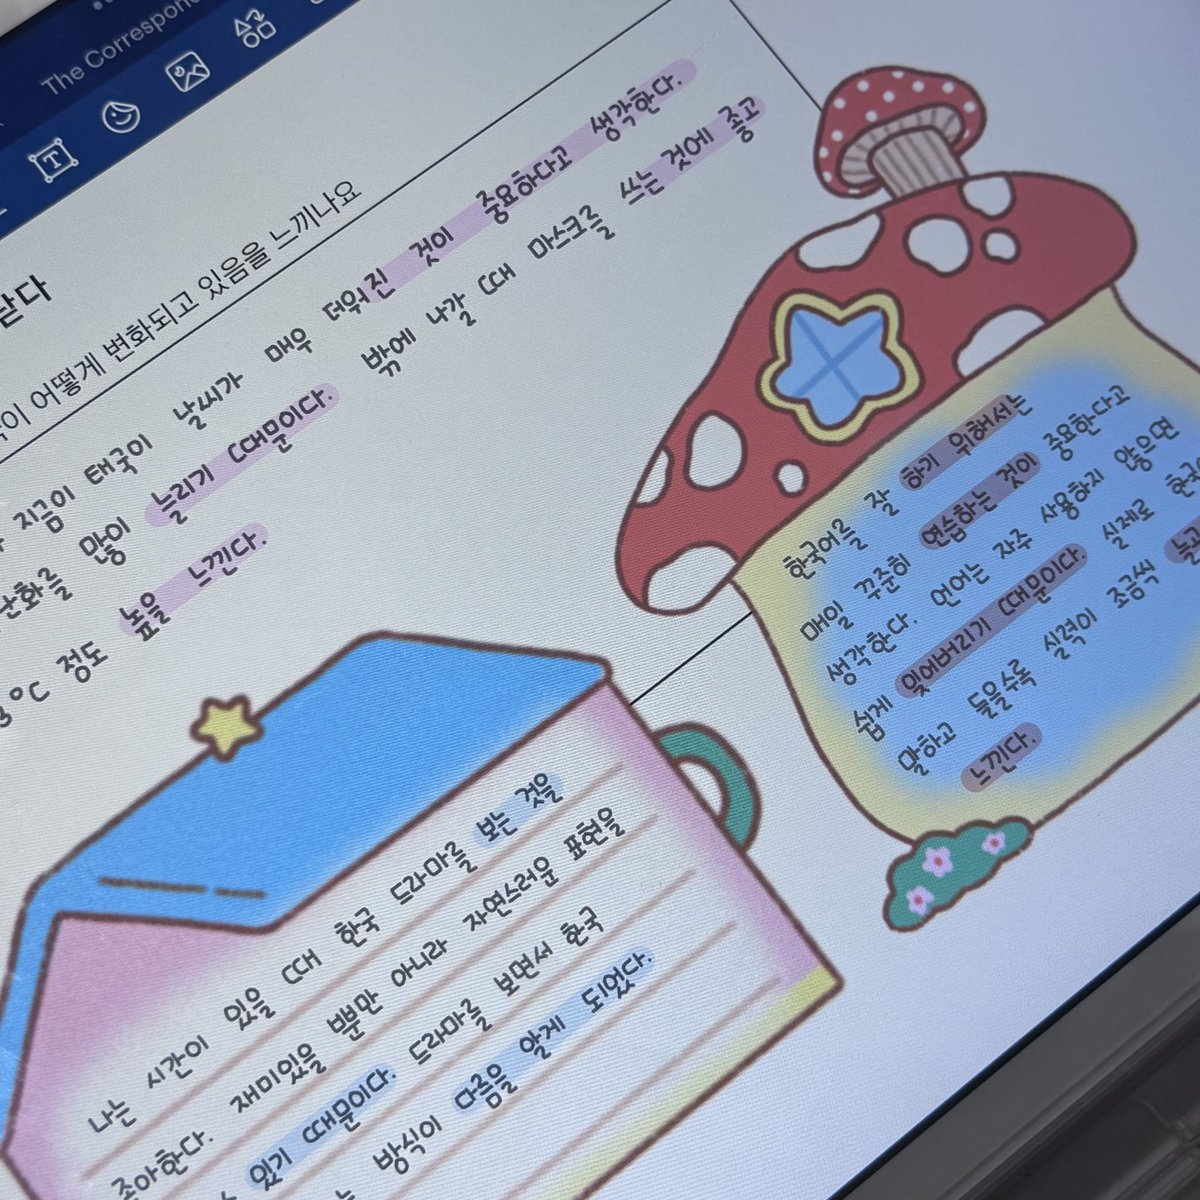 The Correspon
T
닫다
어떻게 변화되고 있음을 느끼나요
지금이 태국이 날씨가 매우 더워진 것이 중요하다고 생각한다.
많이 늘리기 때문이다. 밖에 나갈 때 마스크를 쓰는 것에 좋고
3°C 정도 높을 느낀다.
한국어를 잘 하기 위해서는
매일 꾸준히 연습하는 것이 중요한다고
생각한다. 언어는 자주 사용하지 않으면
쉽게 잊어버리기 때문이다. 실제로
말하고 들을수록 실력이 조금씩
느낀다.
나는 시간이 있을 때 한국 드라마를 보는 것을
좋아한다. 재미있을 뿐만 아니라 자연스러운 표현을
있기 때문이다. 드라마를 보면서 한국
방식이 다름을 알게 되었다.